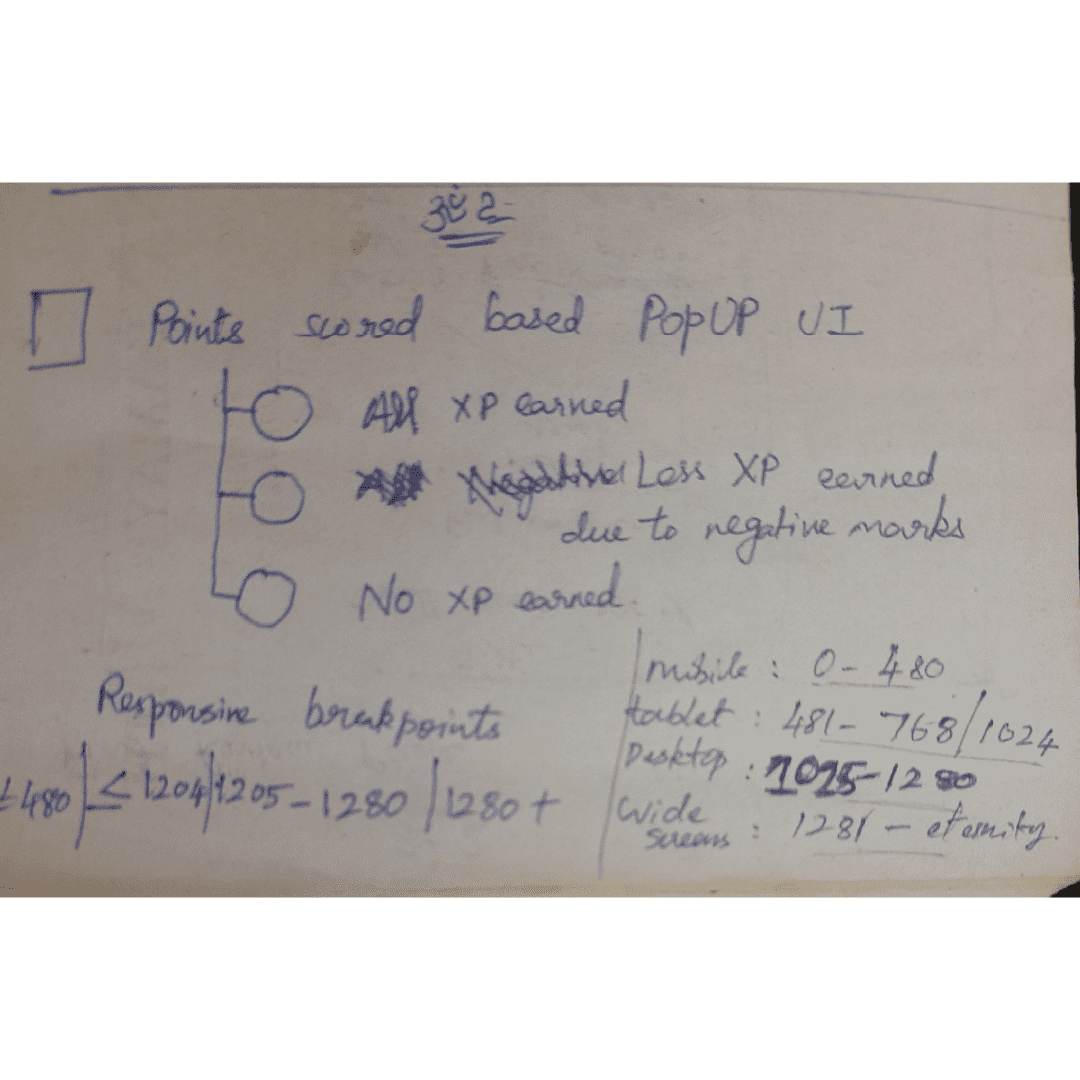 Points scored based PopUP UI
All XP earned
Less XP earned
due to negative marks
No XP earned.
Responsive breakpoints
≤ 480 | ≤ 1204 | 1205 - 1280 | 1280 +
mobile : 0 - 480
tablet : 481 - 768/1024
Desktop : 1025 - 1280
Wide
Screens : 1281 - eternity.